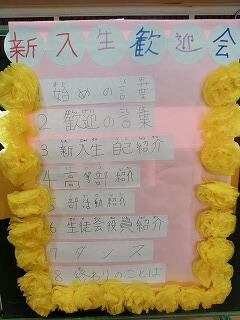 新入生歓迎会
1 始めの言葉
2 歓迎の言葉
3 新入生 自己紹介
4 高等部 紹介
5 部活動紹介
6 生徒会役員紹介
7 ダンス
8 終わりのことば